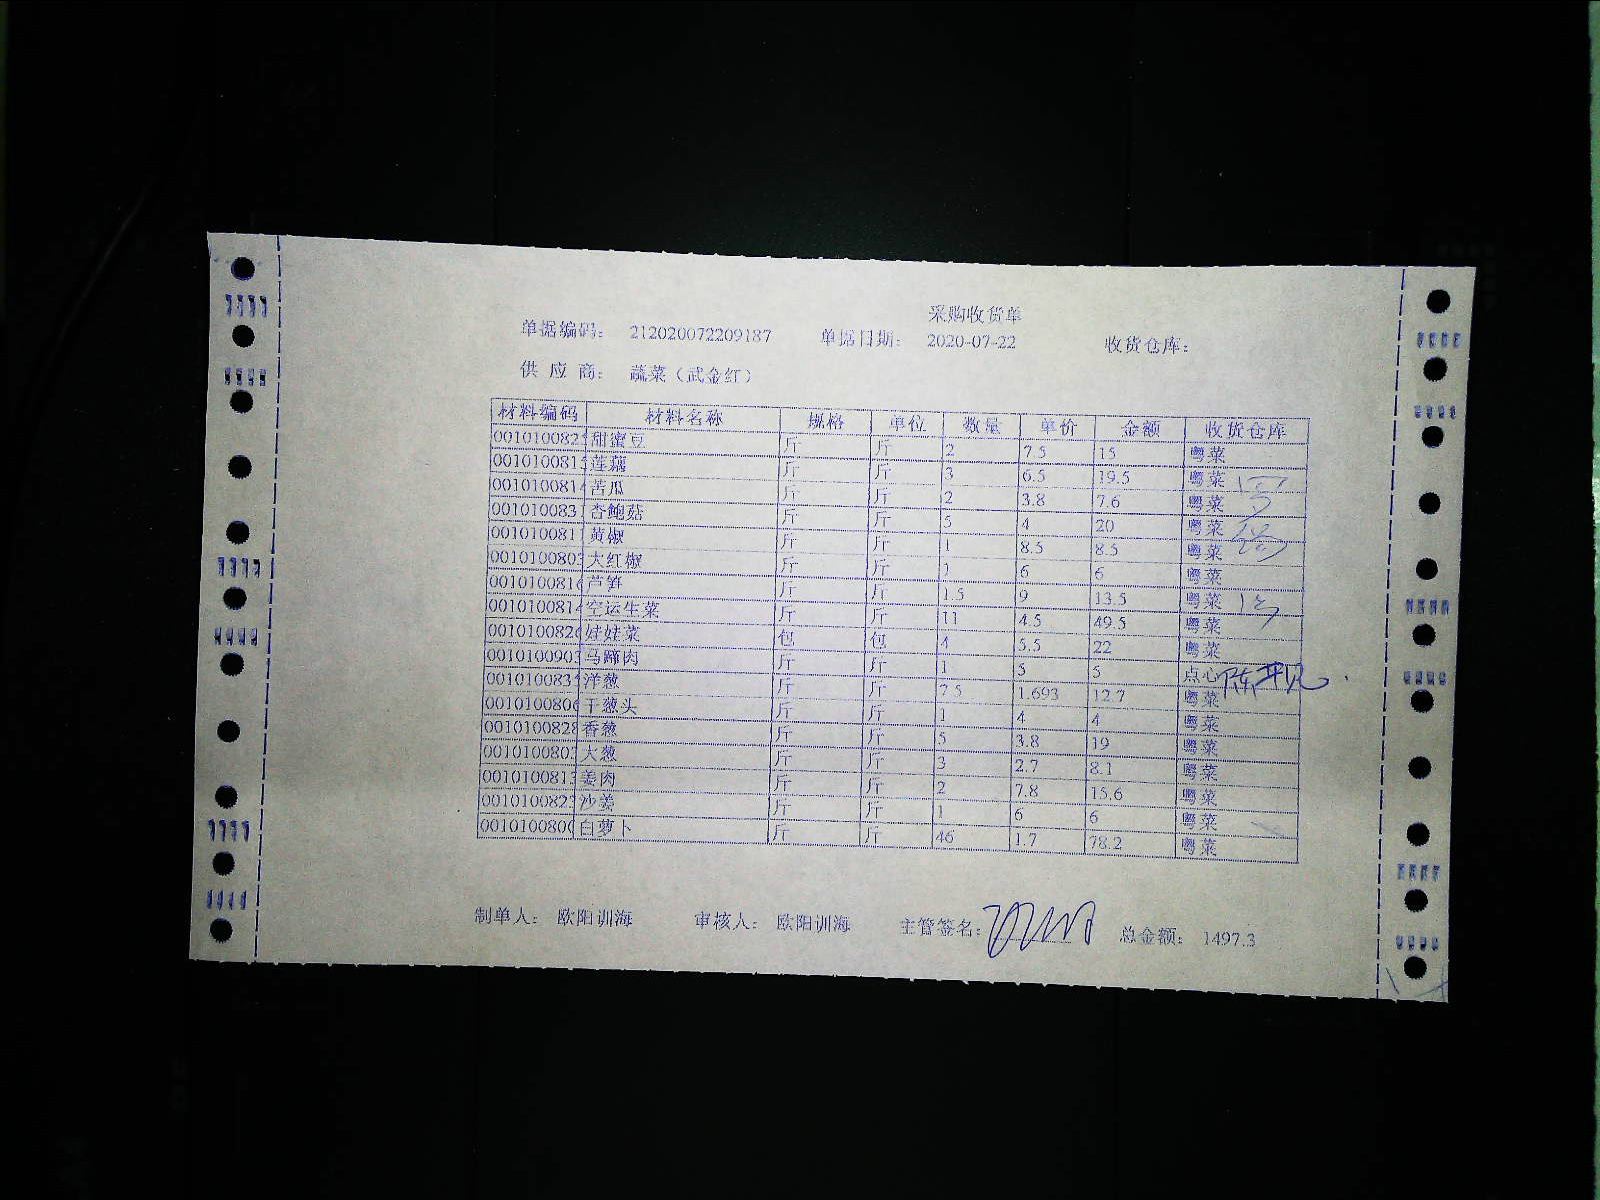 采购收货单
单据编码： 212020072209187 单据日期： 2020-07-22 收货仓库：
供 应 商： 蔬菜（武金红）
材料编码 材料名称 规格 单位 数量 单价 金额 收货仓库
001010082 甜蜜豆 斤 斤 2 7.5 15 粤菜
001010081 莲藕 斤 斤 3 6.5 19.5 粤菜
001010081 苦瓜 斤 斤 2 3.8 7.6 粤菜
001010083 杏鲍菇 斤 斤 5 4 20 粤菜
001010081 黄椒 斤 斤 1 8.5 8.5 粤菜
001010080 大红椒 斤 斤 1 6 6 粤菜
001010081 芦笋 斤 斤 1.5 9 13.5 粤菜
001010081 空运生菜 斤 斤 11 4.5 49.5 粤菜
001010082 娃娃菜 包 包 4 5.5 22 粤菜
001010090 马蹄肉 斤 斤 1 5 5 点心
001010083 洋葱 斤 斤 7.5 1.693 12.7 粤菜
001010080 干葱头 斤 斤 1 4 4 粤菜
001010082 香葱 斤 斤 5 3.8 19 粤菜
001010080 大葱 斤 斤 3 2.7 8.1 粤菜
001010081 姜肉 斤 斤 2 7.8 15.6 粤菜
001010082 沙姜 斤 斤 1 6 6 粤菜
001010080 白萝卜 斤 斤 46 1.7 78.2 粤菜
制单人： 欧阳训海 审核人： 欧阳训海 主管签名： 总金额： 1497.3